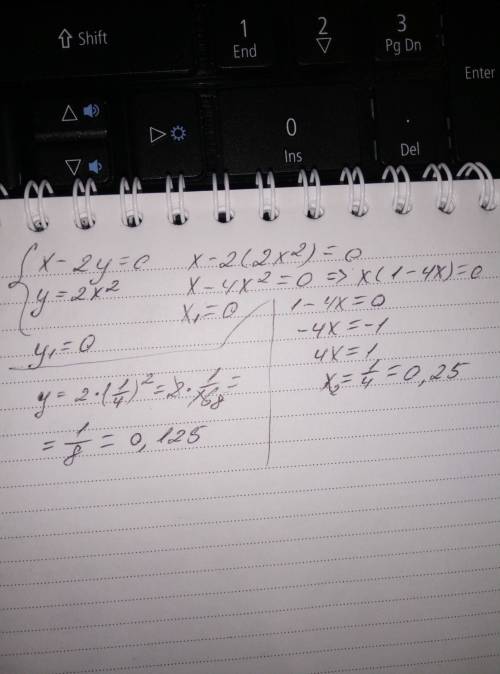 Shift
1
End
2
3
Pg Dn
Enter
0
Ins
.
Del
x - 2y = 0
y = 2x²
y₁ = 0
x - 2(2x²) = 0
x - 4x² = 0 => x(1 - 4x) = 0
x₁ = 0
1 - 4x = 0
-4x = -1
4x = 1
x₂ = 1/4 = 0,25
y = 2·(1/4)² = 2·1/16 8 =
= 1/8 = 0,125